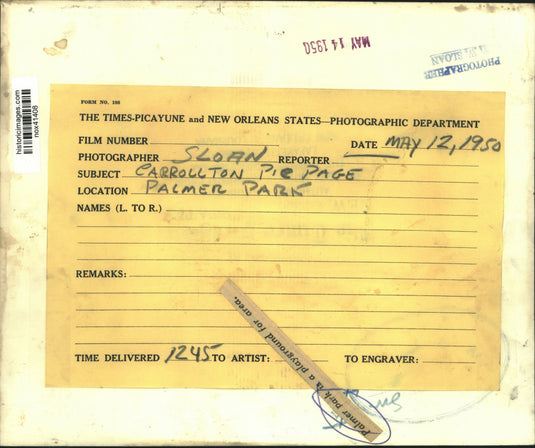 MAY 14 1950
PHOTOGRAPHER
SLOAN
historicimages.com
nox41408
FORM NO. 108
THE TIMES-PICAYUNE and NEW ORLEANS STATES—PHOTOGRAPHIC DEPARTMENT
FILM NUMBER
DATE MAY 12, 1950
PHOTOGRAPHER SLOAN REPORTER
SUBJECT CARROLLTON PIC PAGE
LOCATION PALMER PARK
NAMES (L. TO R.)
REMARKS:
Palmer park is a playground for area.
TIME DELIVERED 1245 TO ARTIST: TO ENGRAVER: